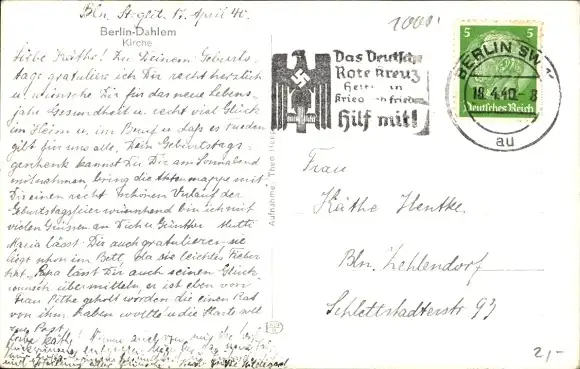 Bln. Steglitz 17. April 40.
Berlin-Dahlem
Kirche
Liebe Käthe! Zu Deinem Geburts-
tage gratuliere ich Dir recht herzlich
u. wünsche Dir für das neue Lebens-
jahr Gesundheit u. recht viel Glück
im Heim u. im Beruf u. daß es
gilt für uns alle. Dein Geburtstags-
geschenk kannst Du Dir am Sonnabend
mitnehmen bring die Aktenmappe mit.
Dir einen recht schönen Verlauf der
Geburtstagsfeier wünschend bin ich mit
vielen Grüssen an Dich u. Günther Mutti
Maria lässt Dir auch gratulieren sie
liegt schon im Bett, da sie leichtes Fieber
hat. Papa lässt Dir auch seinen Glück-
wunsch übermitteln, er ist eben von
Frau geholt worden die einen Rat
von ihm haben wollte u. die Karte soll
zur Post.
Liebe Käthe!
Hildegard
Aufnahme:
1000!
Das Deutsche
Rote Kreuz
Krieg Frieden
Hilf mit!
BERLIN SW 11
18.4.40.-8
au
5 5
Deutsches Reich
Frau
Käthe Hentke.
Bln. Zehlendorf
Schlettstadterstr. 93
2,-